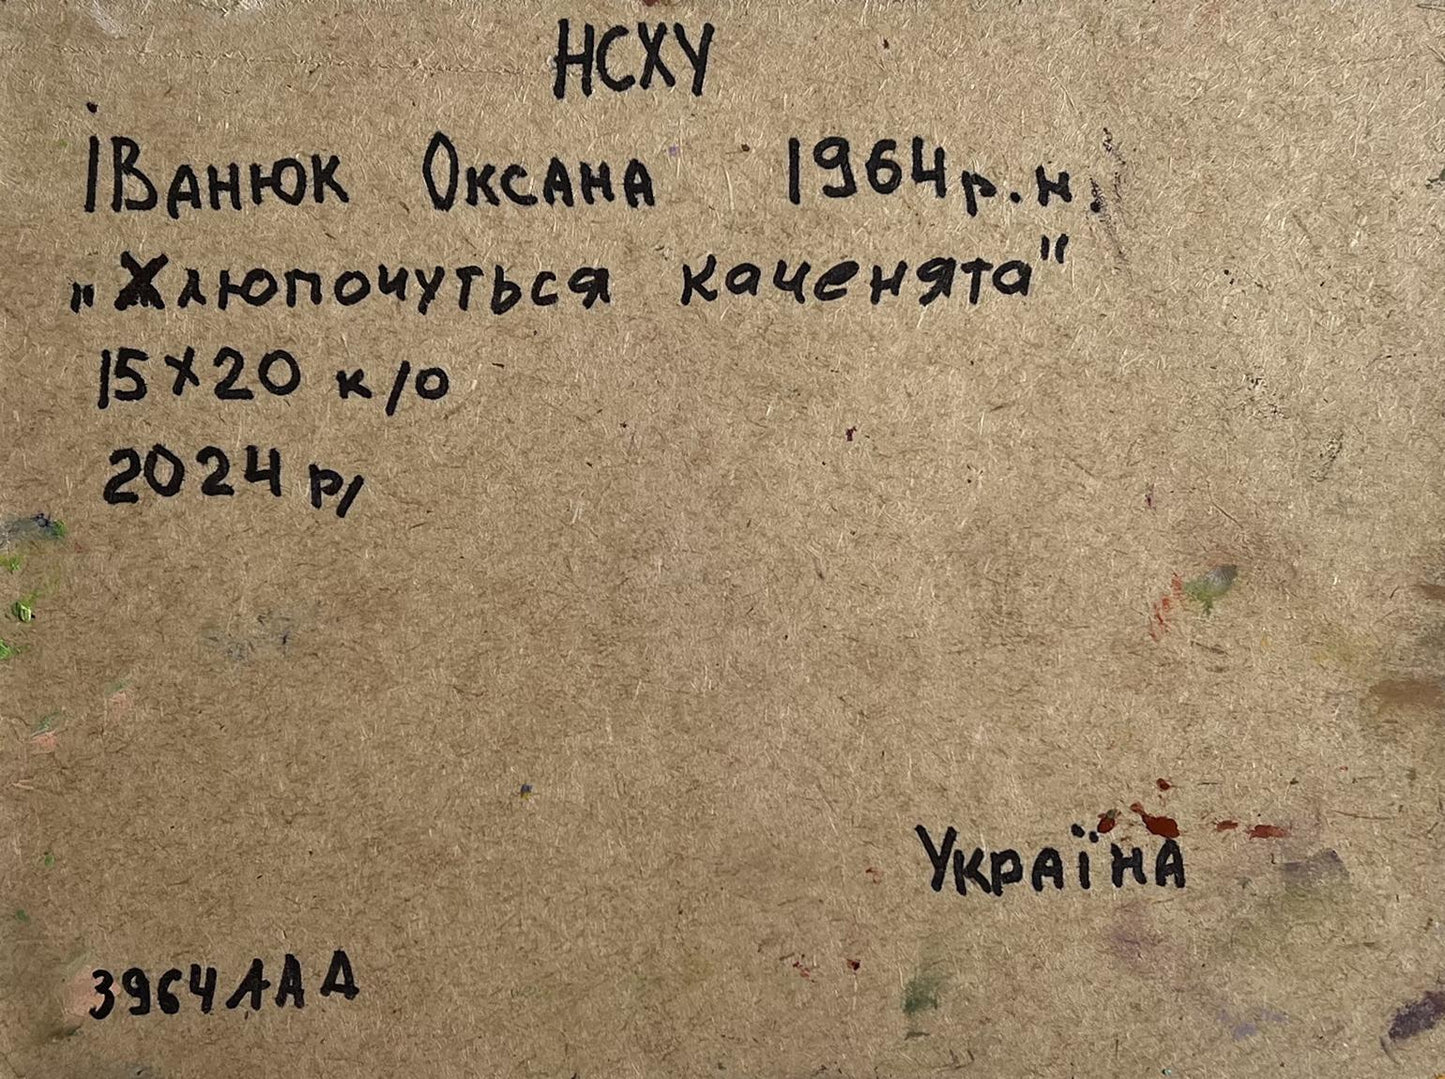 НСХУ
Іванюк Оксана 1964 р.н.
„Хлюпочуться каченята"
15×20 к/о
2024 р,
Україна
3964 ААД